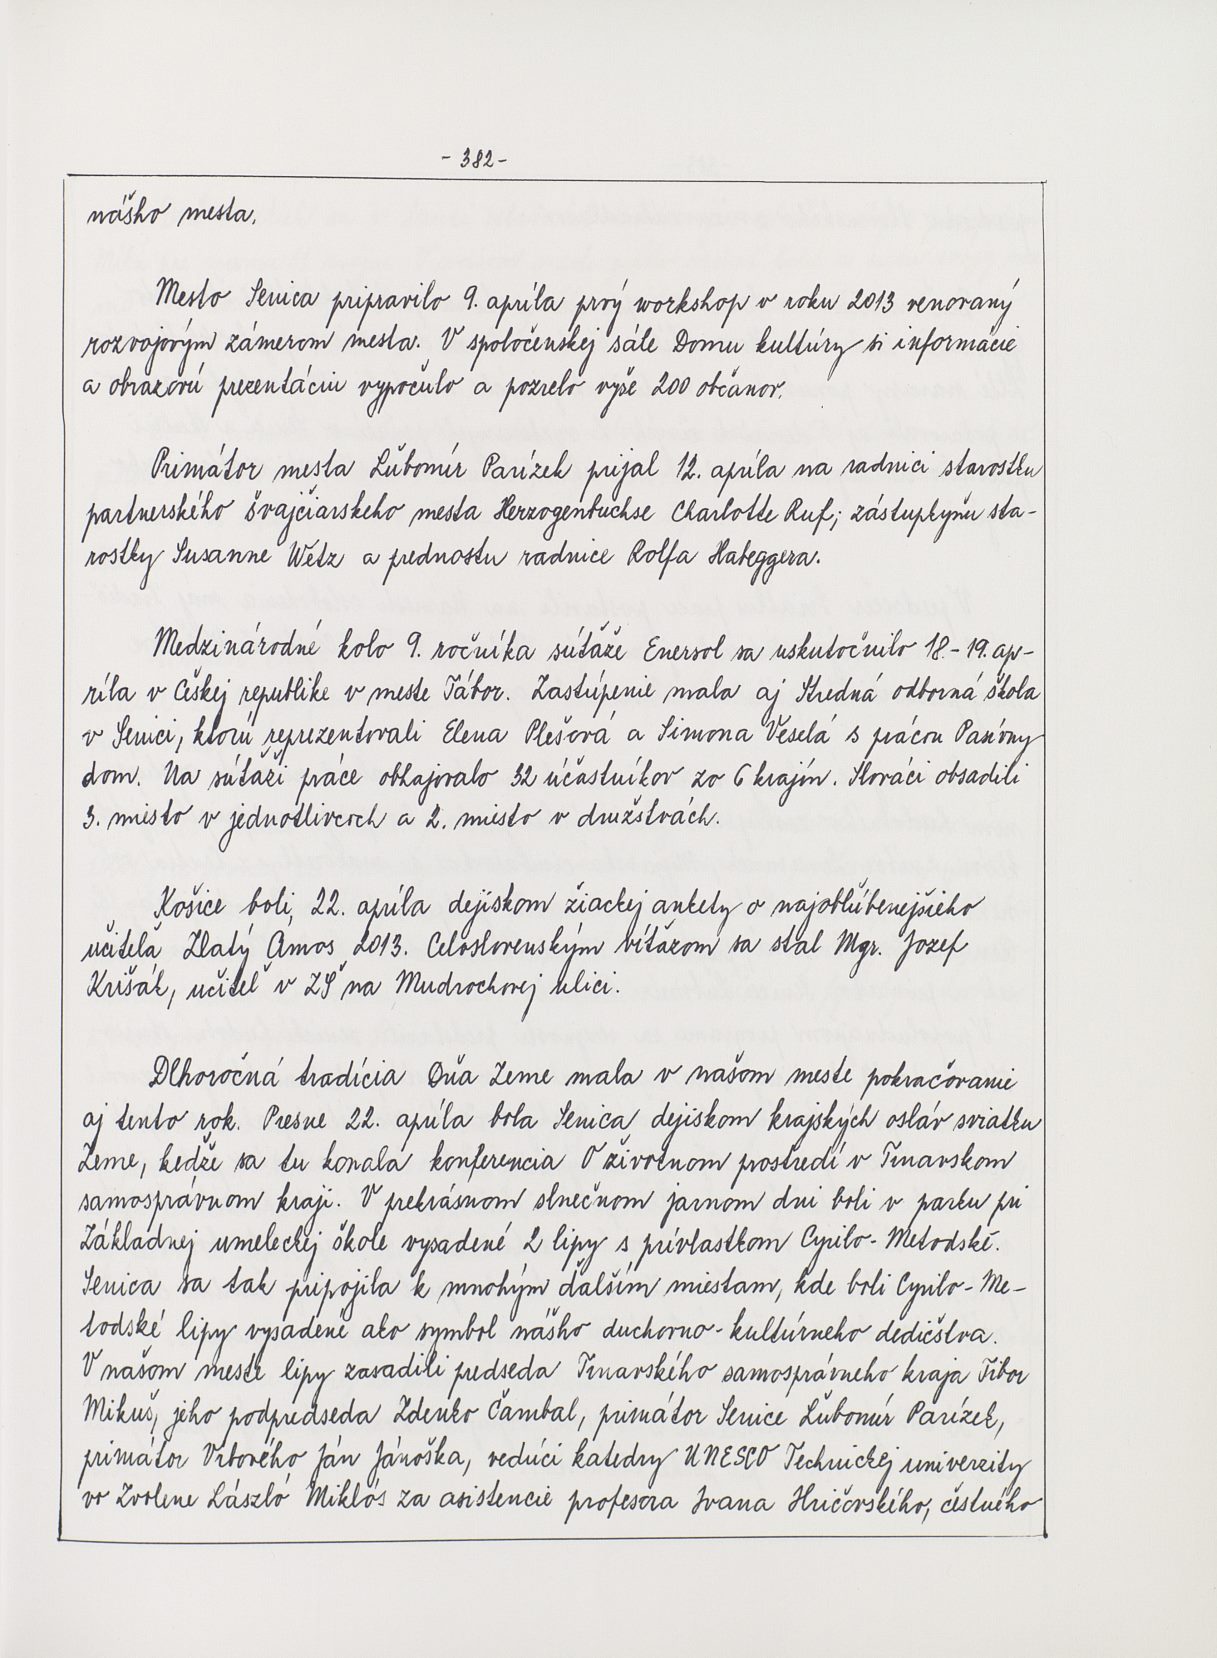 - 382 -
nášho mesta.
Mesto Senica pripravilo 9. apríla prvý workshop v roku 2013 venovaný
rozvojovým zámerom mesta. V spoločenskej sále Domu kultúry si informácie
a obrazovú prezentáciu vypočulo a pozrelo vyše 200 občanov.
Primátor mesta Ľubomír Parízek prijal 12. apríla na radnici starostku
partnerského švajčiarskeho mesta Herzogenbuchse Charlotte Ruf, zástupkyňu sta-
rostky Susanne Wetz a prednostu radnice Rolfa Habeggera.
Medzinárodné kolo 9. ročníka súťaže Enersol sa uskutočnilo 18.-19. ap-
ríla v Českej republike v meste Tábor. Zastúpenie mala aj Stredná odborná škola
v Senici, ktorú reprezentovali Elena Plešová a Simona Veselá s prácou Pasívny
dom. Na súťaži práce obhajovalo 32 účastníkov zo 6 krajín. Slováci obsadili
3. miesto v jednotlivcoch a 2. miesto v družstvách.
Košice boli 22. apríla dejiskom žiackej ankety o najobľúbenejšieho
učiteľa Zlatý Ámos 2013. Celoslovenským víťazom sa stal Mgr. Jozef
Krišák, učiteľ v ZŠ na Mudrochovej ulici.
Dlhoročná tradícia Dňa Zeme mala v našom meste pokračovanie
aj tento rok. Presne 22. apríla bola Senica dejiskom krajských osláv sviatku
Zeme, keďže sa tu konala konferencia O životnom prostredí v Trnavskom
samosprávnom kraji. V prekrásnom slnečnom jarnom dni boli v parku pri
Základnej umeleckej škole vysadené 2 lipy s prívlastkom Cyrilo-Metodské.
Senica sa tak pripojila k mnohým ďalším miestam, kde boli Cyrilo-Me-
todské lipy vysadené ako symbol nášho duchovno-kultúrneho dedičstva.
V našom meste lipy zasadili predseda Trnavského samosprávneho kraja Tibor
Mikuš, jeho podpredseda Zdenko Čambal, primátor Senice Ľubomír Parízek,
primátor Vrbového Ján Jánoška, vedúci katedry UNESCO Technickej univerzity
vo Zvolene László Miklós za asistencie profesora Ivana Hričovského, čestného